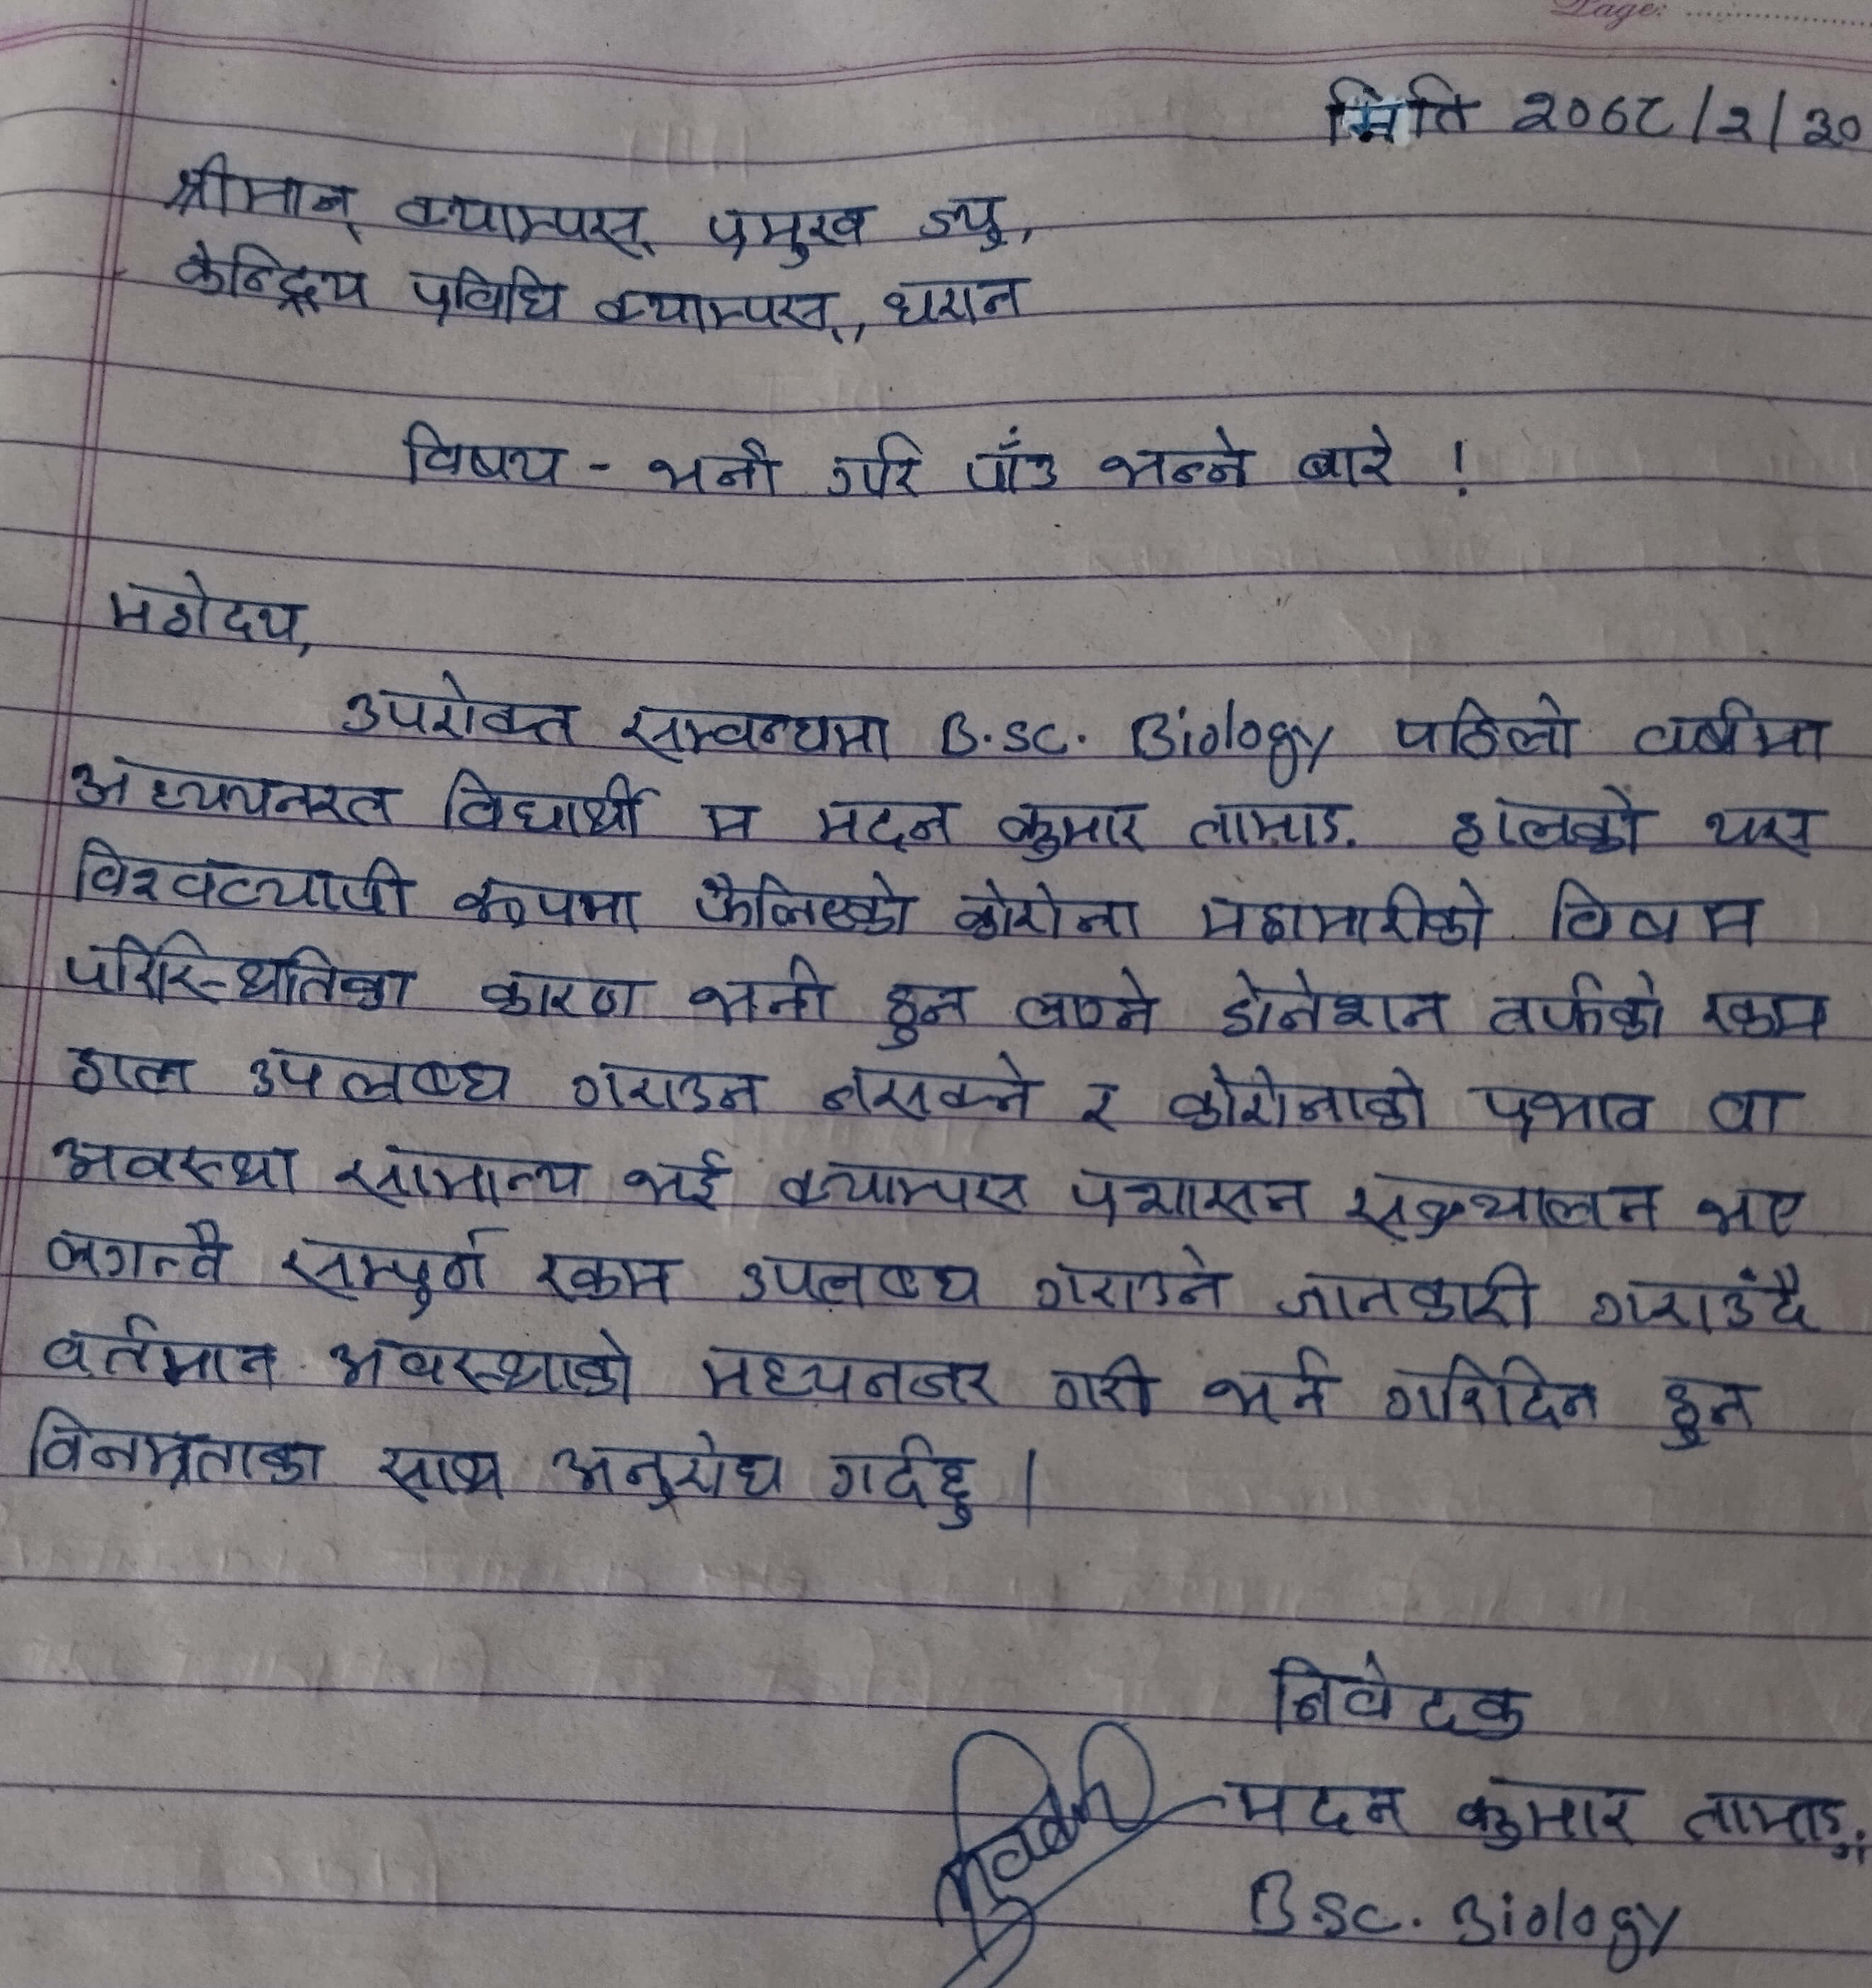 Page: ................
मिति २०७८/२/३०
श्रीमान् क्याम्पस् प्रमुख ज्यु,
केन्द्रिय प्रविधि क्याम्पस्, धरान
विषय - भर्ना गरि पाँउ भन्ने बारे !
महोदय,
उपरोक्त सम्वन्धमा B.sc. Biology पहिलो वर्षमा
अध्ययनरत विद्यार्थी म मदन कुमार तामाङ हालको यस
विश्वव्यापी रूपमा फैलिएको कोरोना महामारीको विषम
परिस्थितिका कारण भर्ना हुन लाग्ने डोनेशन तर्फको रकम
हाल उपलब्ध गराउन नसक्ने र कोरोनाको प्रभाव वा
अवस्था सामान्य भई क्याम्पस प्रशासन सञ्चालन भए
लगत्तै सम्पुर्ण रकम उपलब्ध गराउने जानकारी गराउंदै
वर्तमान अवस्थाको मध्यनजर गरी भर्ना गरिदिन हुन
विनम्रताका साथ अनुरोध गर्दछु ।
निवेदक
मदन कुमार तामाङ
B.sc. Biology